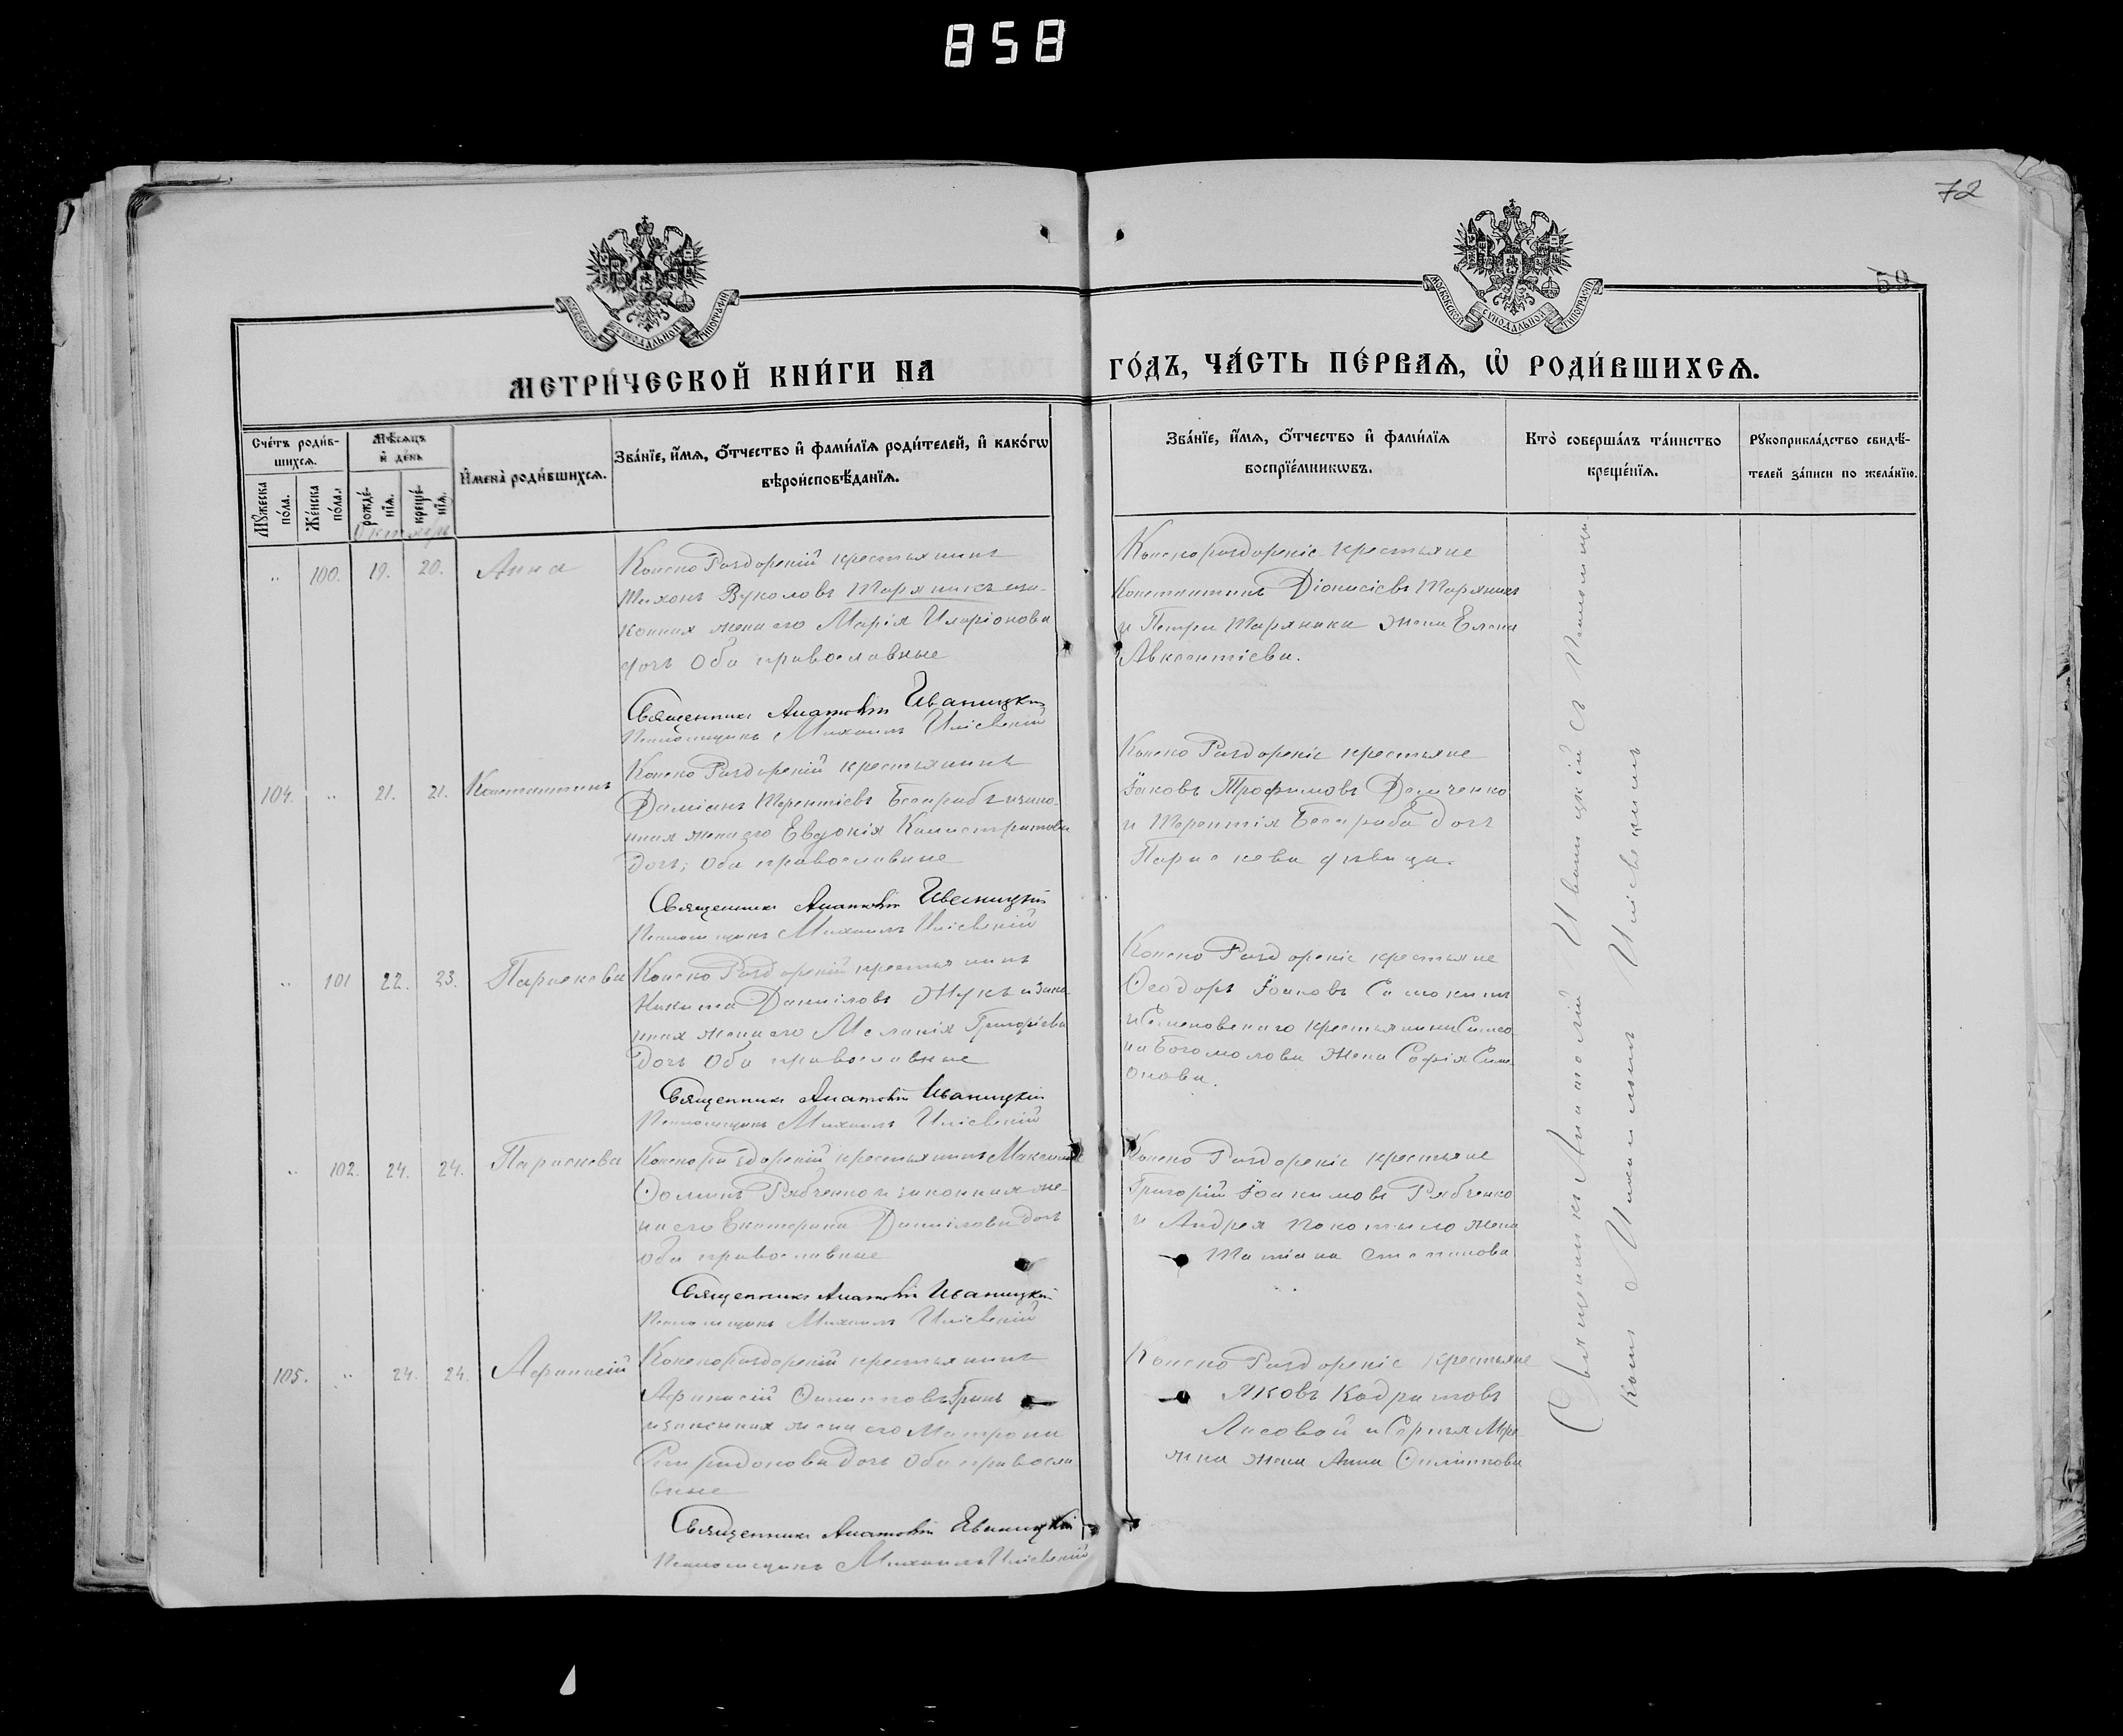 858
72
59
МОСКОВСКОЙ СѴНОДАЛЬНОЙ ТИПОГРАФІИ
МОСКОВСКОЙ СѴНОДАЛЬНОЙ ТИПОГРАФІИ
МЕТРИ́ЧЕСКОЙ КНИ́ГИ НА ГО́ДЪ, ЧА́СТЬ ПЕ́РВАѦ, Ѽ РОДИ́ВШИХСѦ.
Сче́тъ роди́в-
шихсѧ.
Мꙋ́жеска по́ла.
Же́нска по́ла.
Мѣ́сѧцъ
и҆ де́нь
рожде́-нїѧ.
креще́-нїѧ.
И҆мена̀ роди́вшихсѧ.
Зва́нїе, и҆́мѧ, ѻ҆́тчество и҆ фами́лїѧ роди́телей, и҆ како́гѡ
вѣроисповѣ́данїѧ.
Зва́нїе, и҆́мѧ, ѻ҆́тчество и҆ фами́лїѧ
воспрїе́мникѡвъ.
Кто̀ соверша́лъ та́инство
креще́нїѧ.
Рꙋкоприкла́дство свидѣ́-
телей за́писи по жела́нїю.
Октябрь
„ 100. 19. 20. Анна
Конско Раздорскій крестьянинъ
Тихонъ Вуколовъ Таряникъ и за-
конная жена его Марія Иларіонова
дочь Оба православные
Священникъ Анатолій Иваницкій
Псаломщикъ Михаилъ Иліевскій
Конскораздорскіе крестьяне
Константинъ Діонисіевъ Таряникъ
и Петра Таряника жена Елена
Авксентіева.
104. „ 21. 21. Константинъ
Конско Раздорскій крестьянинъ
Даміанъ Терентіевъ Безкрабъ и зако-
нная жена его Евдокія Калистратова
дочь; Оба православные
Священникъ Анатолій Иваницкій
Псаломщикъ Михаилъ Иліевскій
Конско Раздорскіе крестьяне
Іаковъ Трофимовъ Демченко
и Терентія дочь
Параскева дѣвица.
„ 101 22. 23. Параскева
Конско Раздорскій крестьянинъ
Никита Даниловъ Жукъ и зако-
нная жена его Меланія Григорьева
дочь Оба православные
Священникъ Анатолій Иваницкій
Псаломщикъ Михаилъ Иліевскій
Конско Раздорскіе крестьяне
Ѳеодоръ Іоановъ
и Семеновскаго крестьянина Симео
на Богомолова жена Софія Сим
онова.
„ 102. 24. 24. Параскева
Конскораздорскій крестьянинъ Максимъ
Ѳоминъ Рябченко и законная же-
на его Екатерина Данилова дочь
оба православные
Священникъ Анатолій Иваницкій
Псаломщикъ Михаилъ Иліевскій
Конско Раздорскіе крестьяне
Григорій Іоакимовъ Рябченко
и Андрея Покотыло жена
Татіана Степанова
105. „ 24. 24. Афанасій
Конскораздорскій крестьянинъ
Афанасій Филипповъ
и законная жена его Матрона
Спиридонова дочь Оба правосла
вные
Священникъ Анатолій Иваницкій
Псаломщикъ Михаилъ Иліевскій
Конско Раздорскіе крестьяне
Яковъ Кодратовъ
Лисовой и Сергѣя
жена Анна Филиппова
Священникъ Анатолій Иваницкій съ Псаломщи
комъ Михаиломъ Иліевскимъ